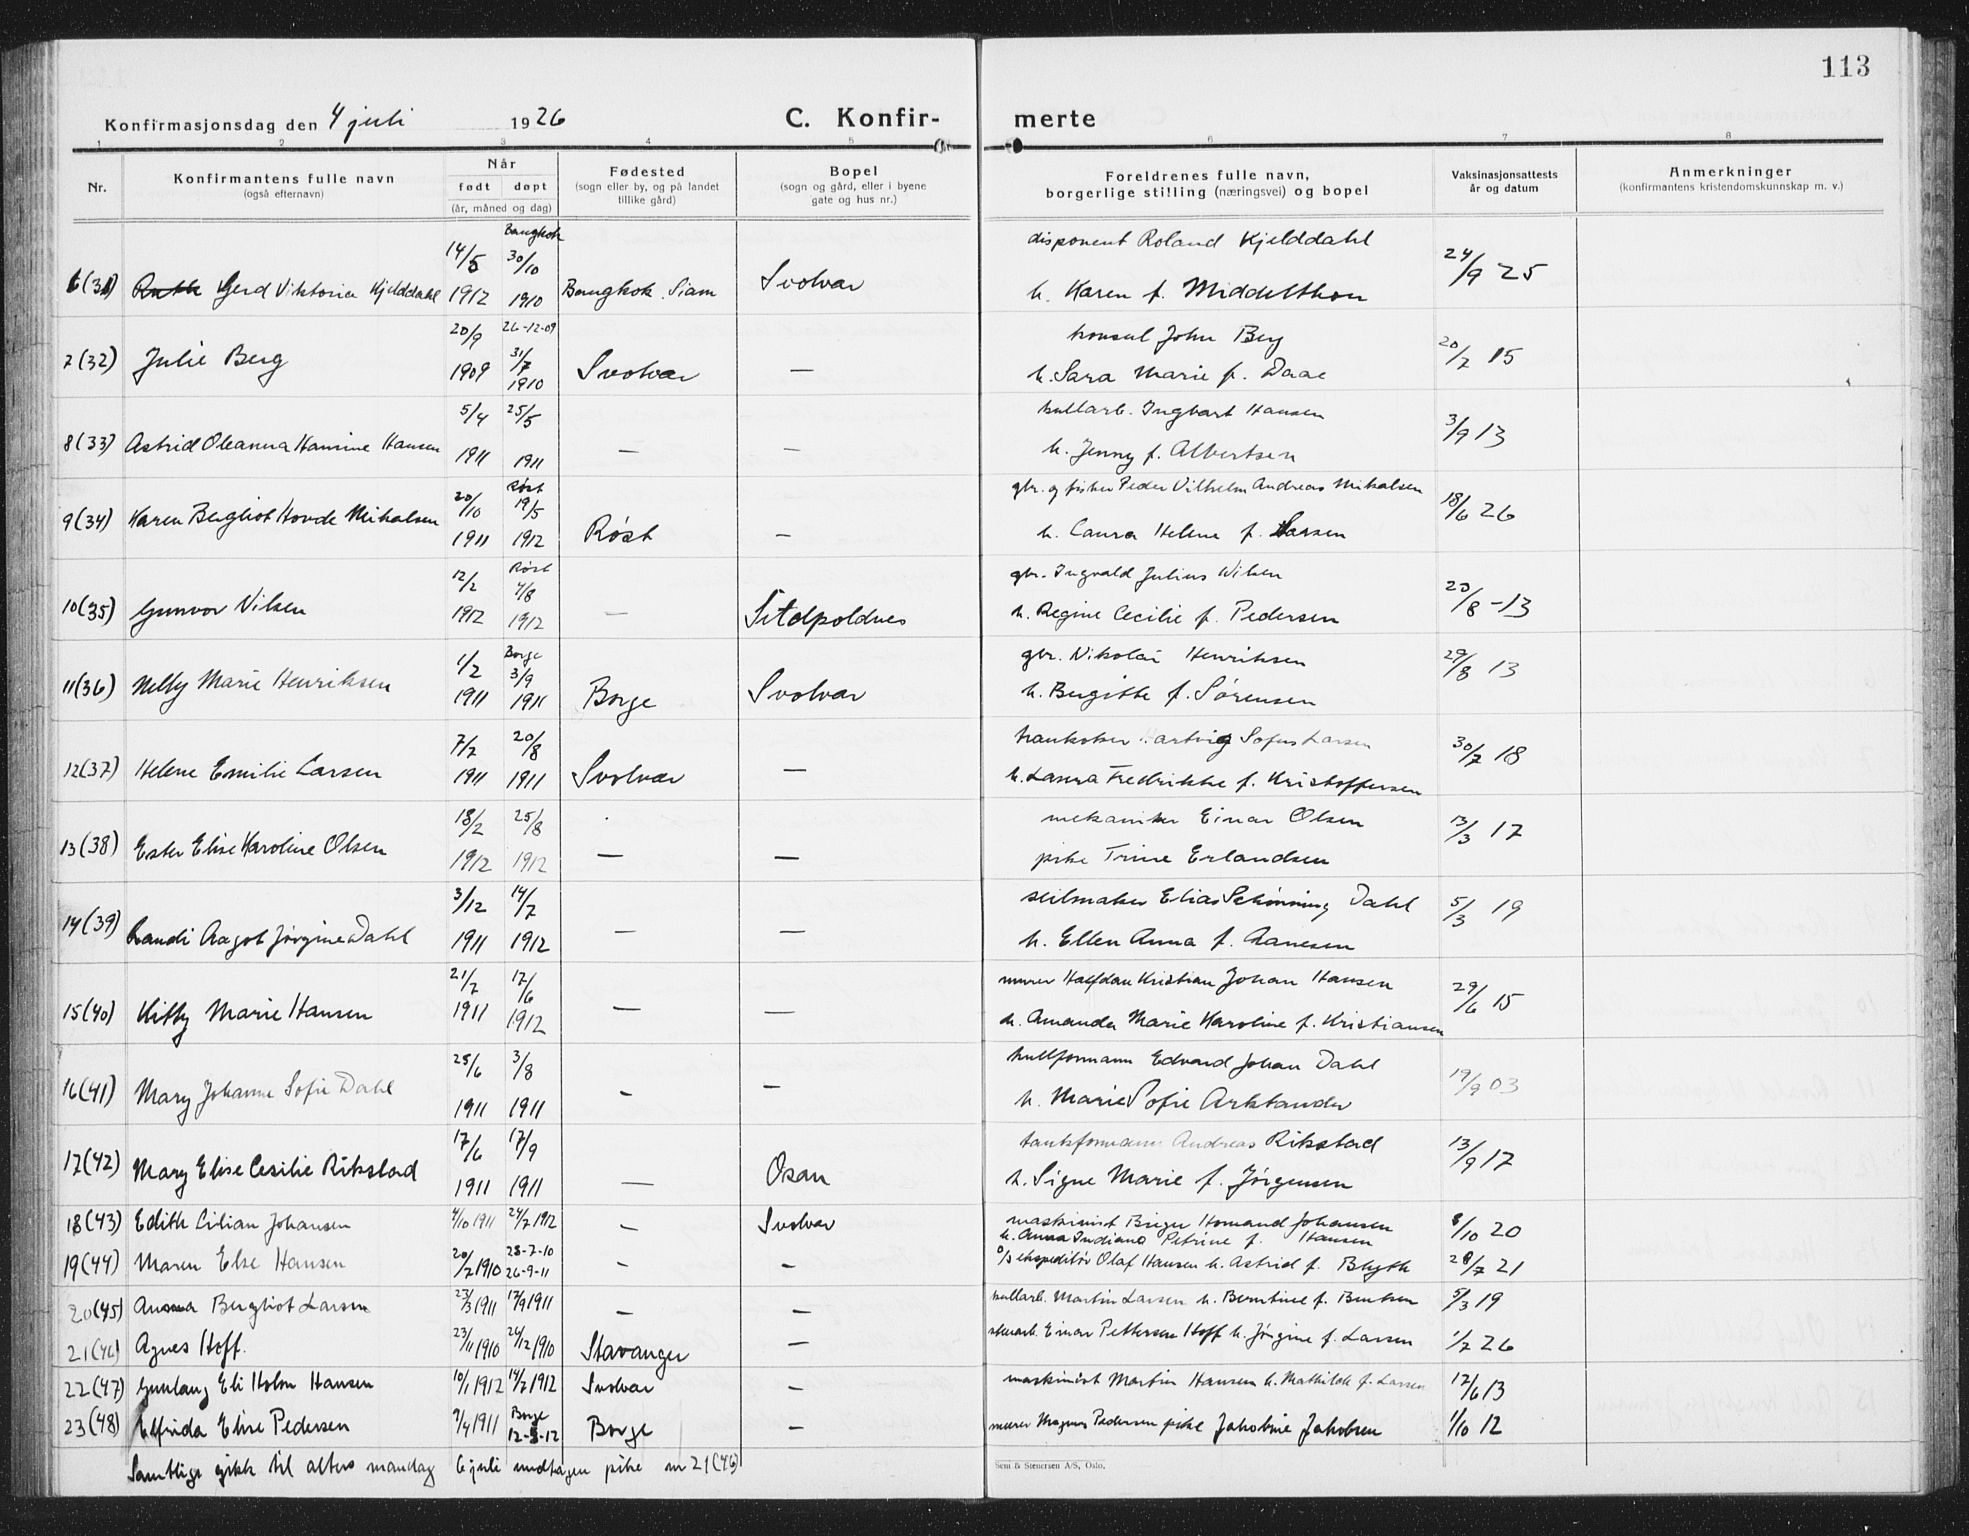 113
Konfirmasjonsdag den 4 juli 1926
C. Konfir-
merte
1 2 3 4 5 6 7 8
Nr.
Konfirmantens fulle navn
(også efternavn)
Når
født døpt
(år, måned og dag)
Fødested
(sogn eller by, og på landet
tillike gård)
Bopel
(sogn og gård, eller i byene
gate og hus nr.)
Foreldrenes fulle navn,
borgerlige stilling (næringsvei) og bopel
Vaksinasjonsattests
år og datum
Anmerkninger
(konfirmantens kristendomskunnskap m. v.)
Bangkok
14/5 30/10 disponent Roland Kjelddahl
6(31) Gerd Viktoria Kjelddahl 1912 1910 Bangkok. Siam Svolvær h. Karen f. Middelthon 24/9 25
20/9 26-12-09 konsul John Berg
2(32) Julie Berg 1909 31/7 1910 Svolvær — h. Sara Marie f. Daae 20/7 15
5/4 25/5 kullarb. Ingvart Hansen
8(33) Astrid Oleanna Hansine Hansen 1911 1911 — — h. Jenny f. Albertsen 3/9 13
Røst
20/10 19/5 gbr. og fisker Peder Vilhelm Andreas Mikalsen
9(34) Karen Bergliot Hovde Mikalsen 1911 1912 Røst — h. Laura Helene f. Larsen 18/6 26
Røst
12/2 4/8 gbr. Ingvald Julius Nilsen
10(35) Gunvor Nilsen 1912 1912 — h. Regine Cecilie f. Pedersen 20/8-13
Borge
1/2 3/9 gbr. Nikolai Henriksen
11(36) Nelly Marie Henriksen 1911 1911 Borge Svolvær h. Bergitte f. Sørensen 29/8 13
7/7 20/8 Sofus Larsen
12(37) Helene Emilie Larsen 1911 1911 Svolvær — h. Laura Fredrikke f. Kristoffersen 30/7 18
18/2 25/8 mekaniker Einar Olsen
13(38) Ester Elise Karoline Olsen 1912 1912 — — pike Trine Erlandsen 13/3 17
3/12 14/7 seilmaker Elias Schønning Dahl
14(39) Randi Aagot Jørgine Dahl 1911 1912 — — h. Ellen Anna f. Aanesen 5/3 19
21/7 17/6 murer Halfdan Kristian Johan Hansen
15(40) Kitty Marie Hansen 1911 1912 — — h. Amanda Marie Karoline f. Kristiansen 29/6 15
25/6 3/8 kullformann Edvard Johan Dahl
16(41) Mary Johanne Sofie Dahl 1911 1911 — — h. Marie Sofie Arktander 19/9 03
17/6 17/9 tankformann Andreas Rikstad
17(42) Mary Elise Cesilie Rikstad 1911 1911 — Osan h. Signe Marie f. Jørgensen 13/9 17
18(43) Edith Lilian Johansen 4/10 1911 24/7 1912 — Svolvær maskinist Birger Johansen 8/10 20
h. Anna Indiana Petrine f. Hansen
19(44) Maren Else Hansen 20/7 1910 28-7-10 26-9-11 — — ekspeditør Olaf Hansen h. Astrid f. Blyth 28/7 21
20(45) Anna Bergliot Larsen 23/3 1911 17/9 1911 — — kullarb. Martin Larsen h. Berntine f. 5/3 19
21(46) Agnes Hoff. 23/11 1910 26/12 1910 Stavanger — Einar Pettersen Hoff h. Jørgine f. Larsen 1/7 26
22(47) Gunlaug Eli Holm Hansen 10/1 1912 14/7 1912 Svolvær — maskinist Martin Hansen h. Mathilde f. Larsen 17/6 13
Borge
23(48) Elfrida Elise Pedersen 9/4 1911 12-5-12 Borge — murer Magnus Pedersen pike Jakobine Jakobsen 1/10 12
Samtlige gikk til alters mandag 6 juli undtagen pike nr 21(46)
Sem & Stenersen A/S, Oslo.